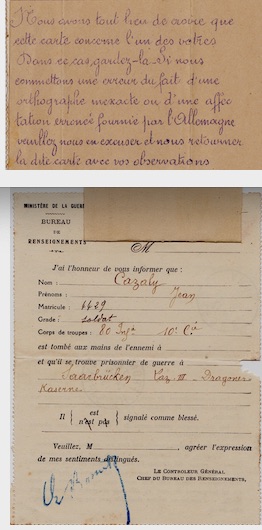 Nous avons tout lieu de croire que
cette carte concerne l'un des vôtres
Dans ce cas, gardez-la. Si nous
commettons une erreur du fait d'une
orthographe inexacte ou d'une affec
tation erronée fournie par l'Allemagne
veuillez nous en excuser et nous retourner
la dite carte avec vos observations
MINISTÈRE DE LA GUERRE
BUREAU
DE
RENSEIGNEMENTS
M
J'ai l'honneur de vous informer que :
Nom : Cazaly
Prénoms : Jean
Matricule : 4429
Grade : soldat
Corps de troupes : 80 Infie 10e Cie
est tombé aux mains de l'ennemi à
et qu'il se trouve prisonnier de guerre à
Saarbrücken Laz. III - Dragoner
Kaserne
Il { est n'est pas } signalé comme blessé.
Veuillez, M agréer l'expression
de mes sentiments distingués.
LE CONTROLEUR GÉNÉRAL
CHEF DU BUREAU DES RENSEIGNEMENTS,